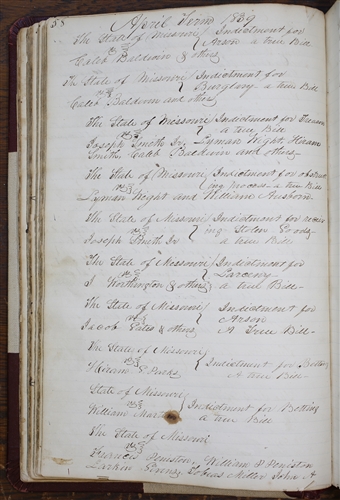 58 April Term 1839
The State of Missouri } Indictment for
vs Arson a true Bill
Caleb Baldwin & others
The State of Missouri } Indictment for
vs Burglary a true Bill
Caleb Baldwin and others
The State of Missouri } Indictment for Treason
vs a true Bill
Joseph Smith Jr. Lyman Wight Hiram
Smith, Caleb Baldwin and others
The State of Missouri } Indictment for obstruct
vs ing process a true Bill
Lyman Wight and William
The State of Missouri } Indictment for receiv
vs ing Stolen Goods
Joseph Smith Jr a true Bill
The State of Missouri } Indictment for
vs Larceny
J Worthington & others a true Bill
The State of Missouri } Indictment for
vs Arson
Jacob Gates & others A True Bill
The State of Missouri
vs } Indictment for Betting
Hiram E Parks A true Bill
State of Missouri
vs } Indictment for Betting
William a true Bill
The State of Missouri
vs
Peniston, William P Peniston
Larkin Miller John A